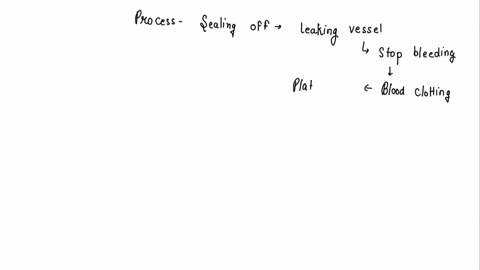 Process- Sealing off → leaking vessel
↳ Stop bleeding
↓
Plat ← Blood clotting